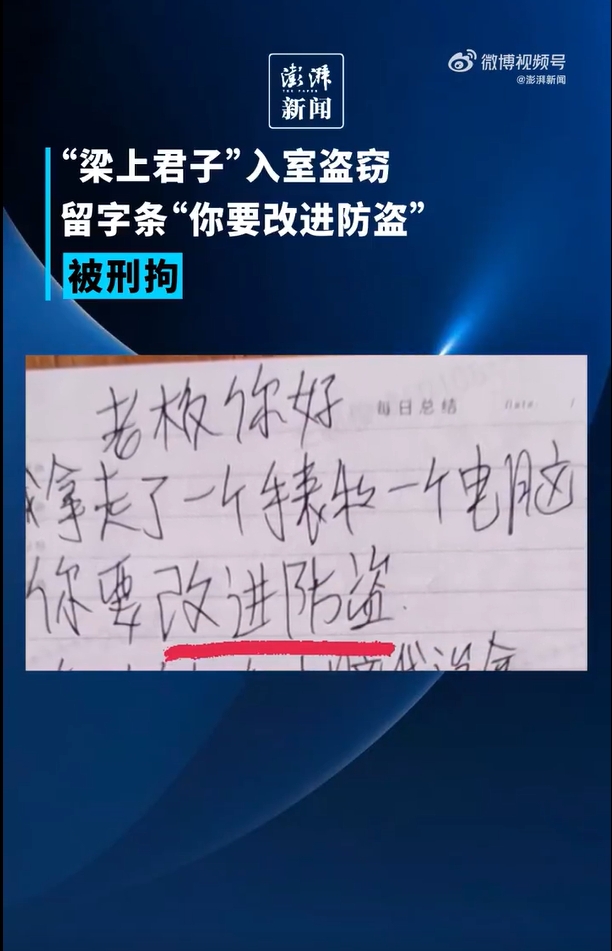 澎湃
THE PAPER
新闻
微博视频号
@澎湃新闻
“梁上君子”入室盗窃
留字条“你要改进防盗”
被刑拘
老板你好
每日总结
Date: /
我拿走了一个手表和一个电脑
你要改进防盗.